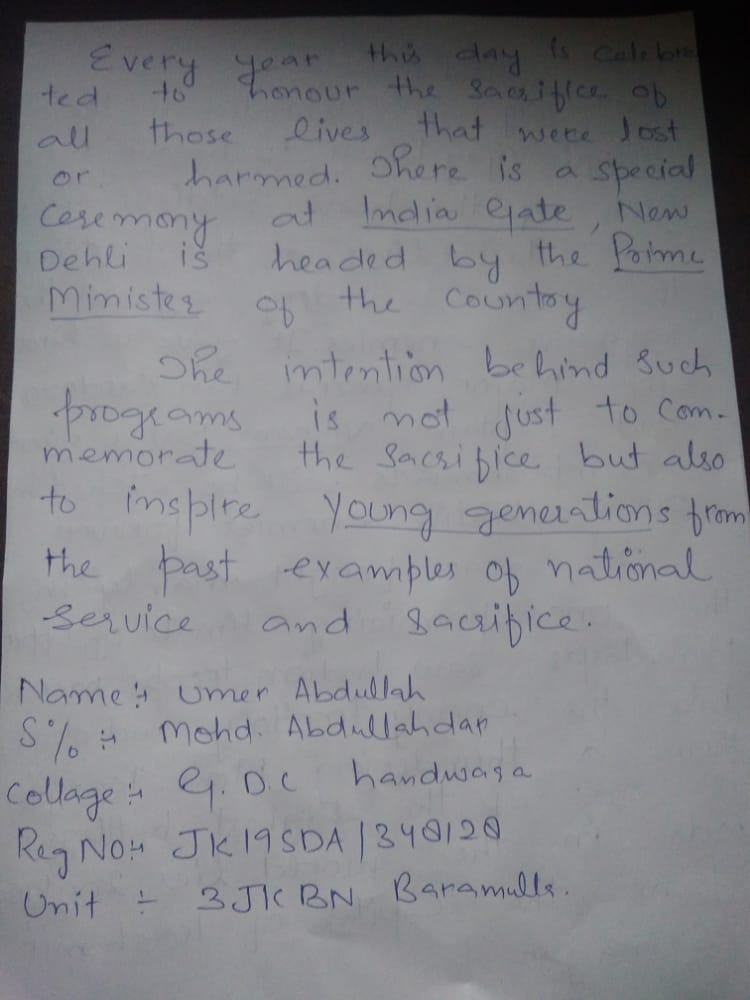 Every year this day is celebra
ted to honour the sacrifice of
all those lives that were lost
or harmed. There is a special
Ceremony at India Gate, New
Dehli is headed by the Prime
Minister of the country
The intention behind such
programs is not just to com-
memorate the sacrifice but also
to inspire young generations from
the past examples of national
service and sacrifice.
Name:- Umer Abdullah
S% :- Mohd. Abdullahdar
Collage:- G.D.C handwara
Reg No:- JK19SDA/340120
Unit ÷ 3JK BN Baramulla.